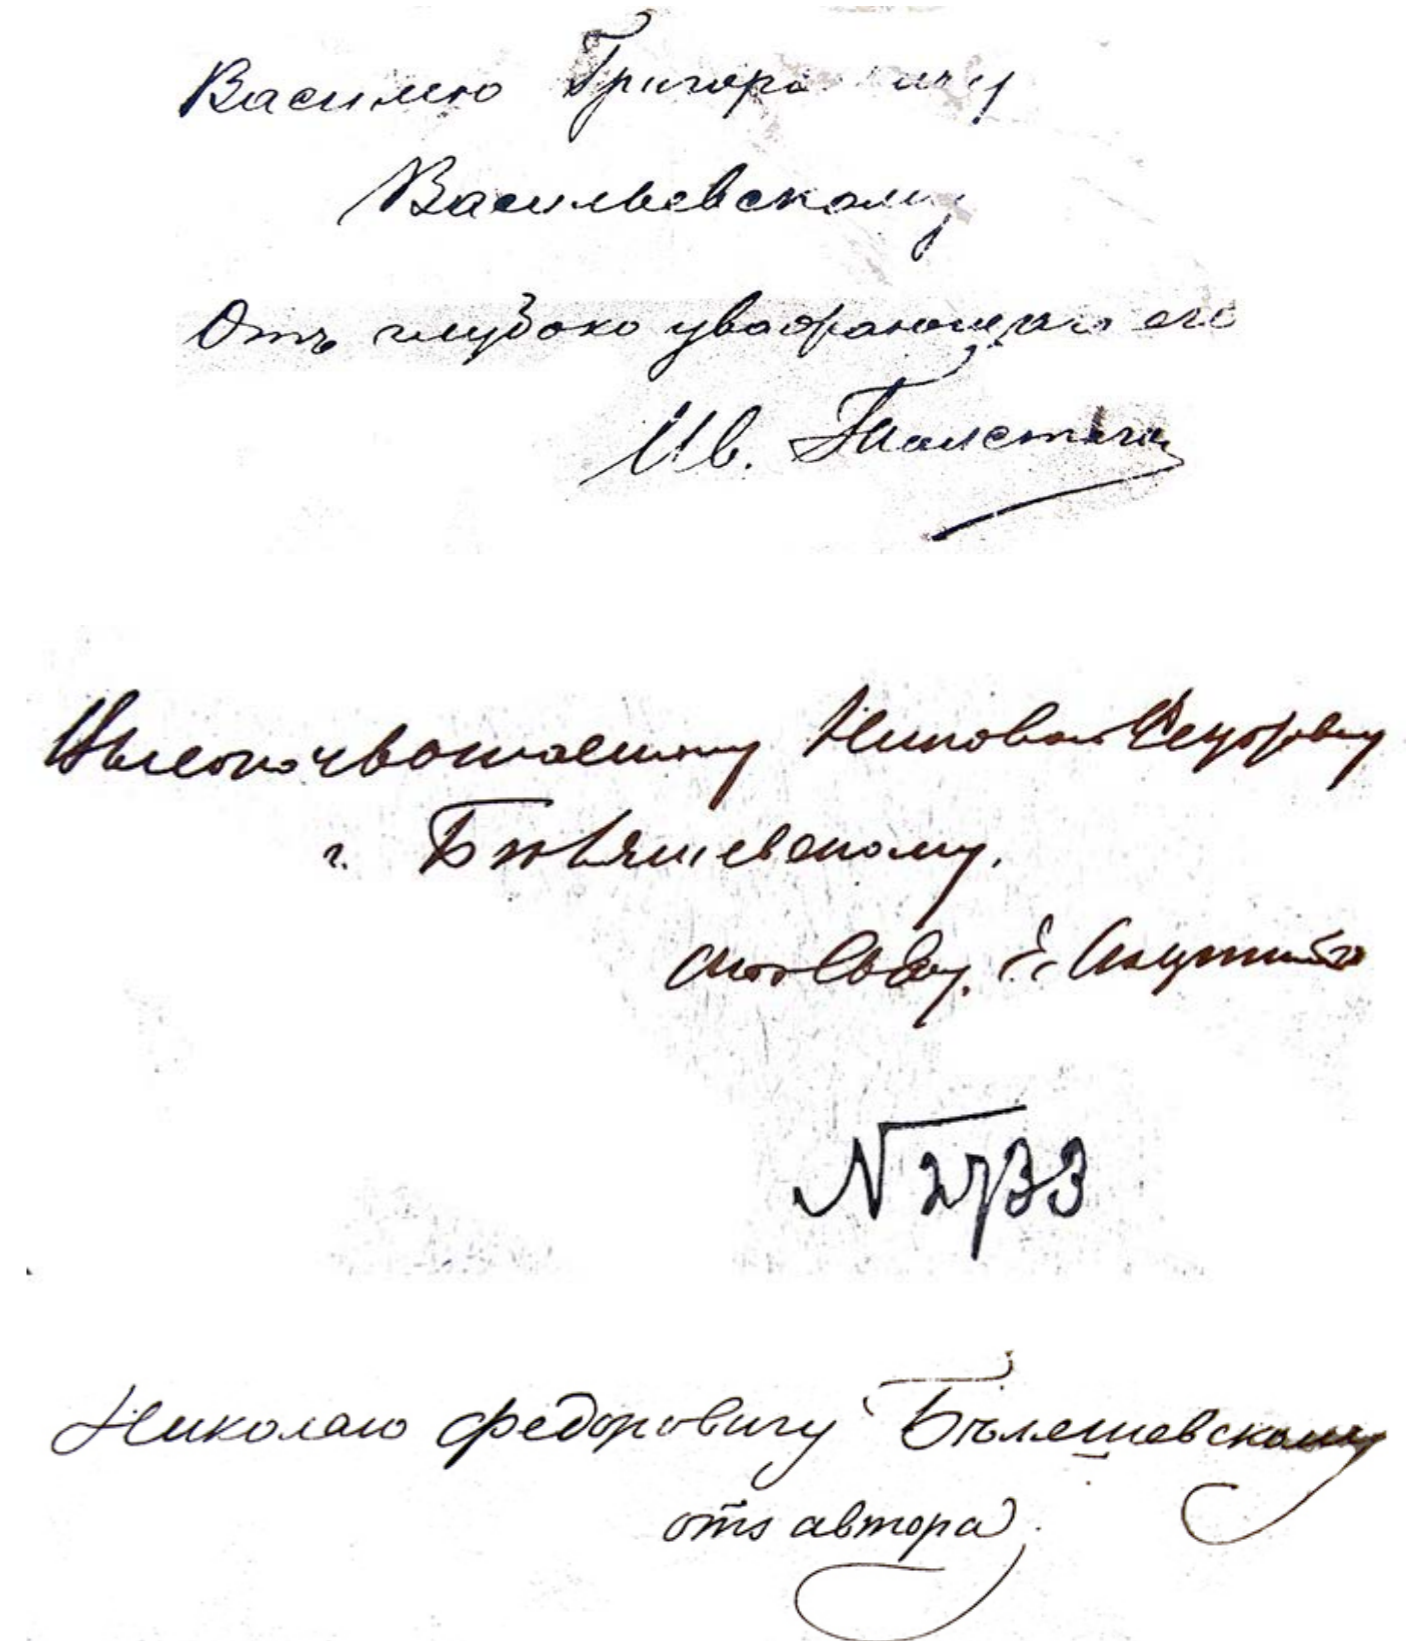 Василию Григорьевичу
Васильевскому
Отъ глубоко уважающаго его
Ив. Толстого
Высокоуважаемому Николаю Федоровичу
г. Бѣляшевскому.
№ 2733
Николаю Федоровичу Бѣляшевскому
отъ автора.